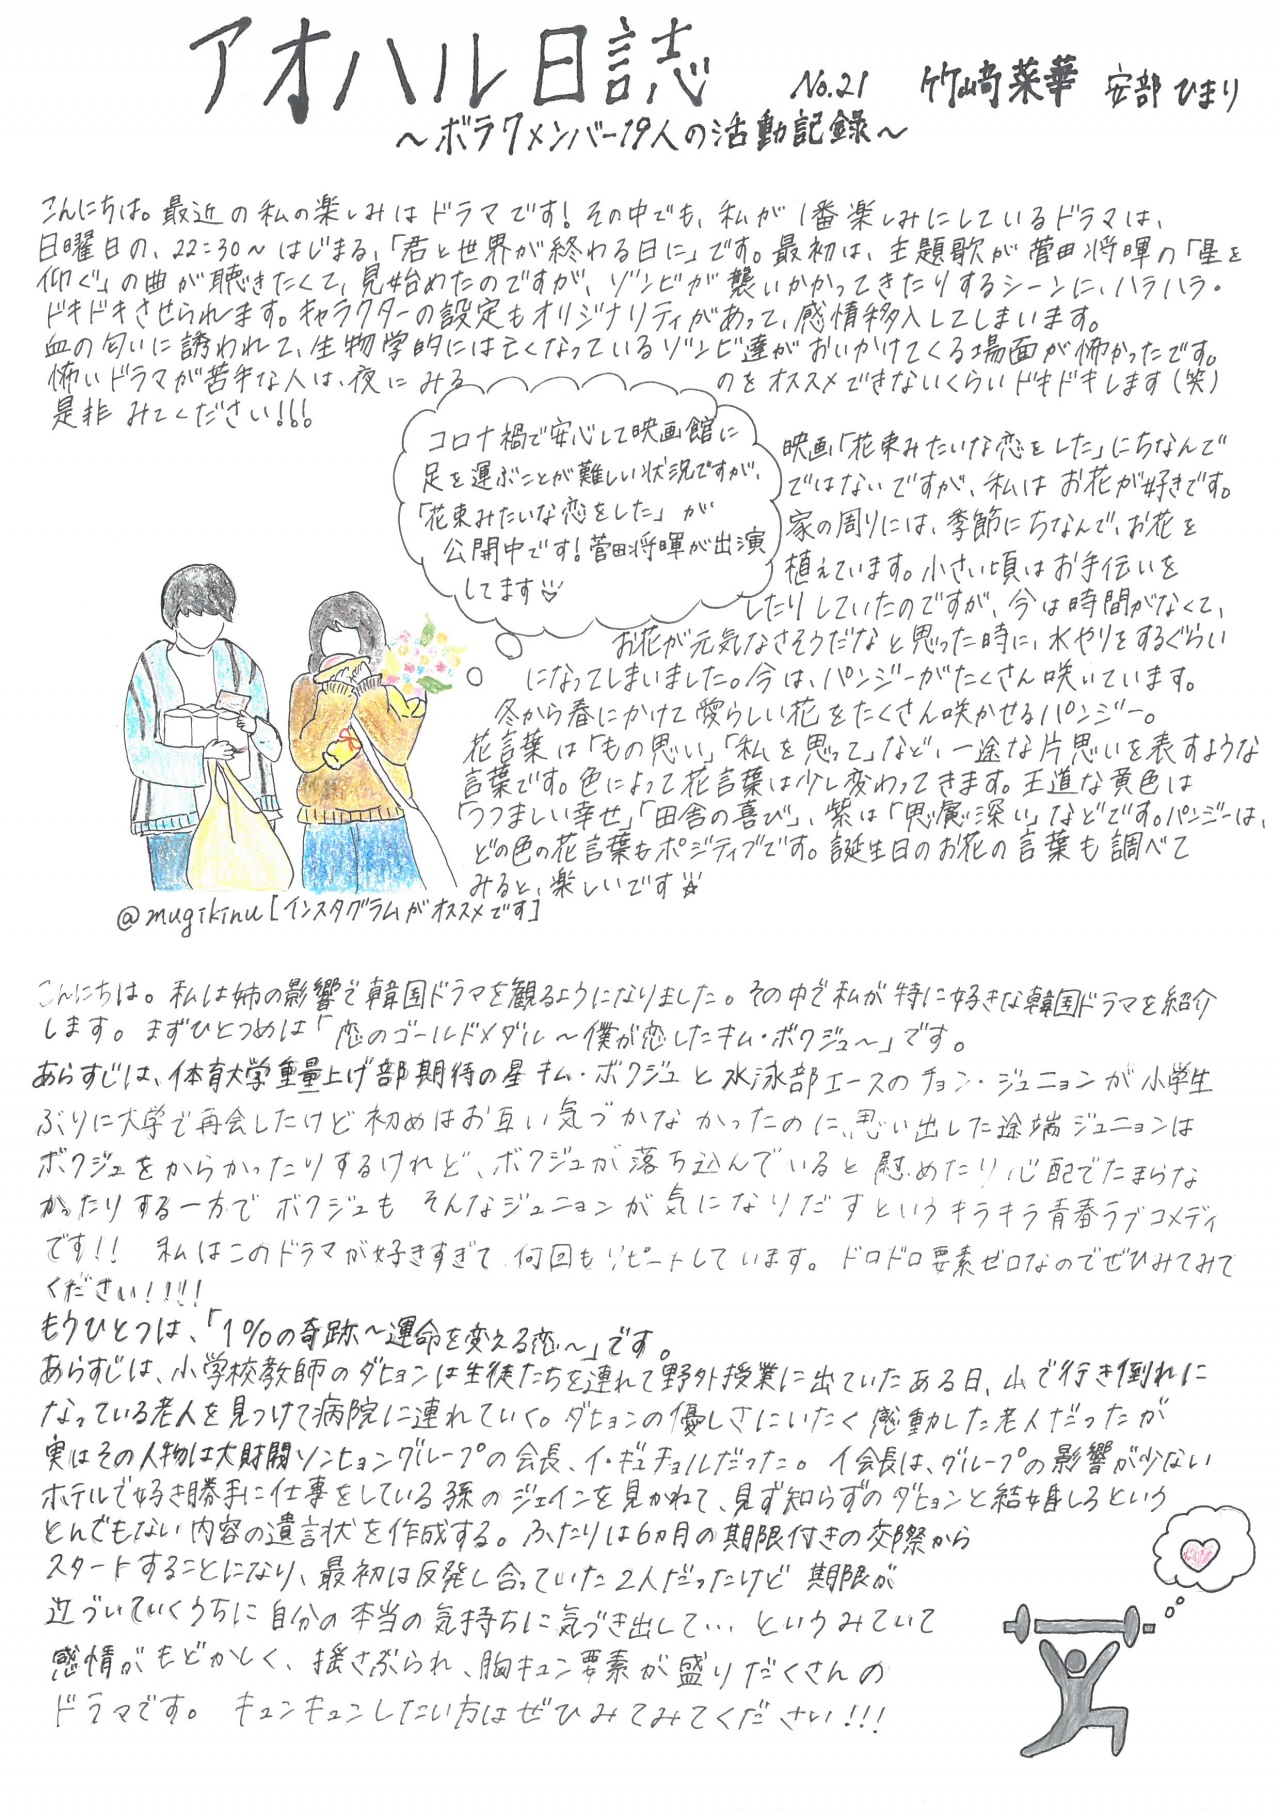 アオハル日誌 No.21 竹崎菜華 安部ひまり
～ボラクメンバー19人の活動記録～
こんにちは。最近の私の楽しみはドラマです！その中でも、私が1番楽しみにしているドラマは、
日曜日の、22:30～はじまる、「君と世界が終わる日に」です。最初は、主題歌が菅田将暉の「星を
仰ぐ」の曲が聴きたくて、見始めたのですが、ゾンビが襲いかかってきたりするシーンに、ハラハラ・
ドキドキさせられます。キャラクターの設定もオリジナリティがあって、感情移入してしまいます。
血の匂いに誘われて、生物学的には亡くなっているゾンビ達がおいかけてくる場面が怖かったです。
怖いドラマが苦手な人は、夜にみるのをオススメできないくらいドキドキします（笑）
是非みてください!!!
コロナ禍で安心して映画館に
足を運ぶことが難しい状況ですが、
「花束みたいな恋をした」が
公開中です！菅田将暉が出演
してます
映画「花束みたいな恋をした」にちなんで
ではないですが、私はお花が好きです。
家の周りには、季節にちなんで、お花を
植えています。小さい頃はお手伝いを
したりしていたのですが、今は時間がなくて、
お花が元気なさそうだなと思った時に、水やりをするぐらい
になってしまいました。今は、パンジーがたくさん咲いています。
冬から春にかけて愛らしい花をたくさん咲かせるパンジー。
花言葉は「もの思い」「私を思って」など、一途な片思いを表すような
言葉です。色によって花言葉は少し変わってきます。王道な黄色は
「つつましい幸せ」「田舎の喜び」、紫は「思慮深い」などです。パンジーは、
どの色の花言葉もポジティブです。誕生日のお花の言葉も調べて
みると、楽しいです
@mugikinu[インスタグラムがオススメです]
こんにちは。私は姉の影響で韓国ドラマを観るようになりました。その中で私が特に好きな韓国ドラマを紹介
します。まずひとつめは「恋のゴールドメダル～僕が恋したキム・ボクジュ～」です。
あらすじは、体育大学重量上げ部期待の星キム・ボクジュと水泳部エースのチョン・ジュニョンが小学生
ぶりに大学で再会したけど初めはお互い気づかなかったのに、思い出した途端ジュニョンは
ボクジュをからかったりするけれど、ボクジュが落ち込んでいると慰めたり心配でたまらな
かったりする一方でボクジュもそんなジュニョンが気になりだすというキラキラ青春ラブコメディ
です!! 私はこのドラマが好きすぎて何回もリピートしています。ドロドロ要素ゼロなのでぜひみてみて
ください!!!!
もうひとつは、「1%の奇跡～運命を変える恋～」です。
あらすじは、小学校教師のダヒョンは生徒たちを連れて野外授業に出ていたある日、山で行き倒れに
なっている老人を見つけて病院に連れていく。ダヒョンの優しさにいたく感動した老人だったが
実はその人物は大財閥ソンヒョングループの会長、イ・ギュチョルだった。イ会長は、グループの影響が少ない
ホテルで好き勝手に仕事をしている孫のジェインを見かねて、見ず知らずのダヒョンと結婚しろという
とんでもない内容の遺言状を作成する。ふたりは6ヵ月の期限付きの交際から
スタートすることになり、最初は反発し合っていた2人だったけど期限が
近づいていくうちに自分の本当の気持ちに気づき出して…というみていて
感情がもどかしく、揺さぶられ、胸キュン要素が盛りだくさんの
ドラマです。キュンキュンしたい方はぜひみてみてください!!!